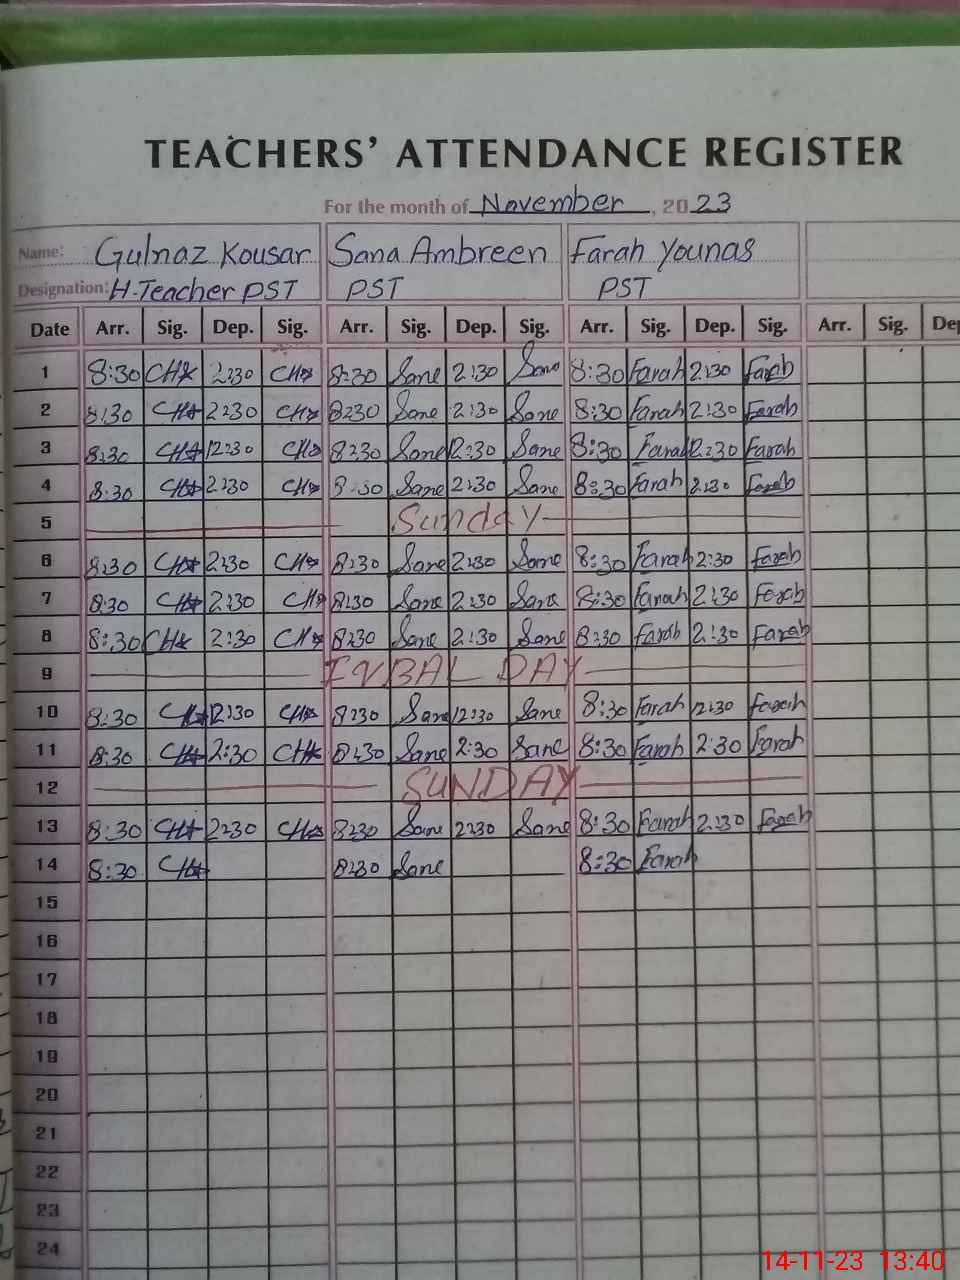 TEACHERS' ATTENDANCE REGISTER
For the month of November, 2023
Name: Gulnaz Kousar Sana Ambreen Farah Younas
Designation: H-Teacher PST PST PST
Date Arr. Sig. Dep. Sig. Arr. Sig. Dep. Sig. Arr. Sig. Dep. Sig. Arr. Sig. Dep
1 8:30 2:30 8:30 Sane 2:30 Sane 8:30 Farah 2:30 Farah
2 8:30 2:30 8:30 Sane 2:30 Sane 8:30 Farah 2:30 Farah
3 8:30 2:30 8:30 Sane 2:30 Sane 8:30 Farah 2:30 Farah
4 8:30 2:30 8:30 Sane 2:30 Sane 8:30 Farah 2:30 Farah
5 Sunday
6 8:30 2:30 8:30 Sane 2:30 Sane 8:30 Farah 2:30 Farah
7 8:30 2:30 8:30 Sane 2:30 Sane 8:30 Farah 2:30 Farah
8 8:30 2:30 8:30 Sane 2:30 Sane 8:30 Farah 2:30 Farah
9 IQBAL DAY
10 8:30 12:30 8:30 Sane 12:30 Sane 8:30 Farah 12:30 Farah
11 8:30 2:30 8:30 Sane 2:30 Sane 8:30 Farah 2:30 Farah
12 SUNDAY
13 8:30 2:30 8:30 Sane 2:30 Sane 8:30 Farah 2:30 Farah
14 8:30 8:30 Sane 8:30 Farah
15
16
17
18
19
20
21
22
23
24
14-11-23 13:40